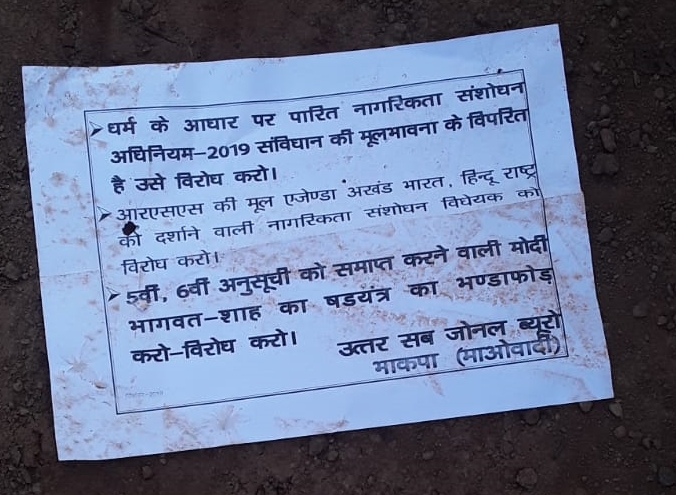 ➤ धर्म के आधार पर पारित नागरिकता संशोधन
अधिनियम-2019 संविधान की मूलभावना के विपरित
है उसे विरोध करो।
➤ आरएसएस की मूल एजेण्डा अखंड भारत, हिन्दू राष्ट्र
की दर्शाने वाली नागरिकता संशोधन विधेयक को
विरोध करो।
➤ 5वीं, 6वीं अनुसूची को समाप्त करने वाली मोदी
भागवत-शाह का षडयंत्र का भण्डाफोड़
करो-विरोध करो।
उत्तर सब जोनल ब्यूरो
भाकपा (माओवादी)